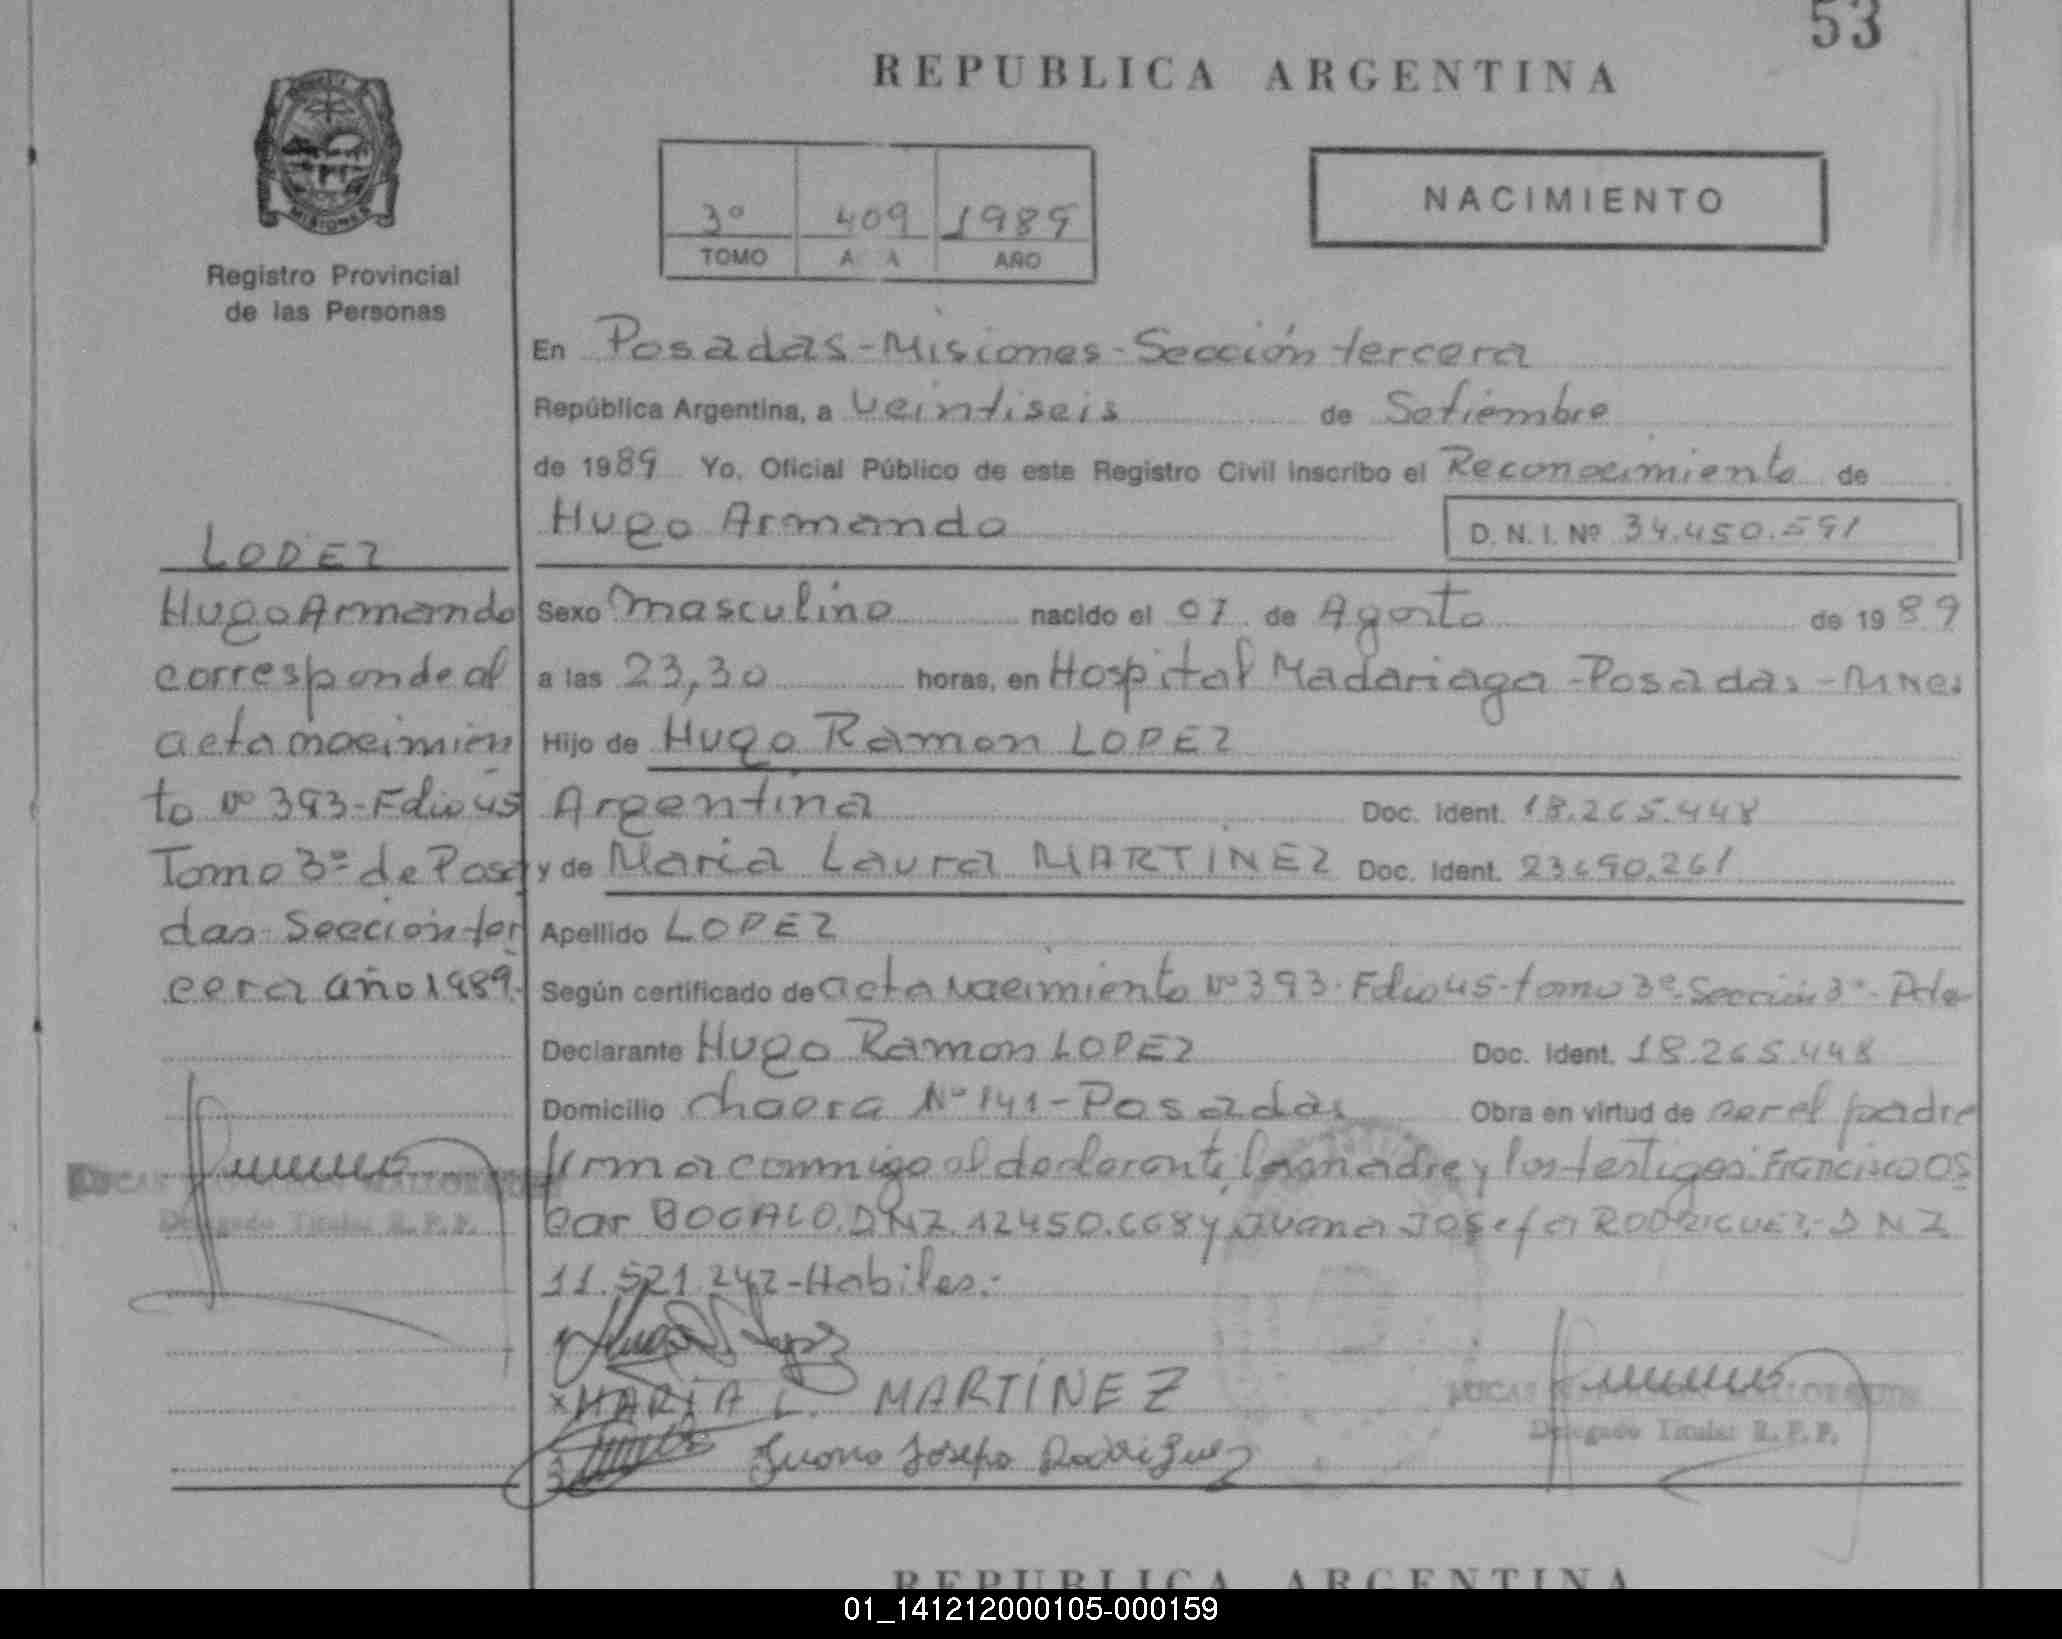 53
REPUBLICA ARGENTINA
MISIONES
Registro Provincial
de las Personas
3º 409 1989
TOMO A A AÑO
NACIMIENTO
En Posadas-Misiones-Sección tercera
República Argentina, a veintiseis de Setiembre
de 1989 Yo, Oficial Público de este Registro Civil inscribo el Reconocimiento de
Hugo Armando D. N. I. Nº 34.450.591
Sexo masculino nacido el 07 de Agosto de 1989
a las 23,30 horas, en Hospital Madariaga-Posadas-Mnes
Hijo de Hugo Ramon LOPEZ
Argentina Doc. Ident. 18.265.448
y de Maria Laura MARTINEZ Doc. Ident. 23690.261
Apellido LOPEZ
Según certificado de acta Nacimiento Nº 393-Folio 45-tomo 3º-Sección 3º-
Declarante Hugo Ramon LOPEZ Doc. Ident. 18.265.448
Domicilio chacra Nº 141-Posadas Obra en virtud de ser el padre
firma conmigo el declarante, la madre y los testigos: Francisco Os
car BOGALO.DNI.12450.668 y Juana Josefa RODRIGUEZ-DNI
11.521.242-Habiles.-
LOPEZ
Hugo Armando
corresponde al
acta nacimien
to Nº 393-Folio 45
Tomo 3º de Posa
das-Sección ter
cera año 1989.-
LUCAS
Delegado Titular R. P. P.
Hugo R Lopez
x MARIA L. MARTÍNEZ
Juana Josefa Rodriguez
LUCAS
Delegado Titular R. P. P.
REPUBLICA ARGENTINA
01_141212000105-000159